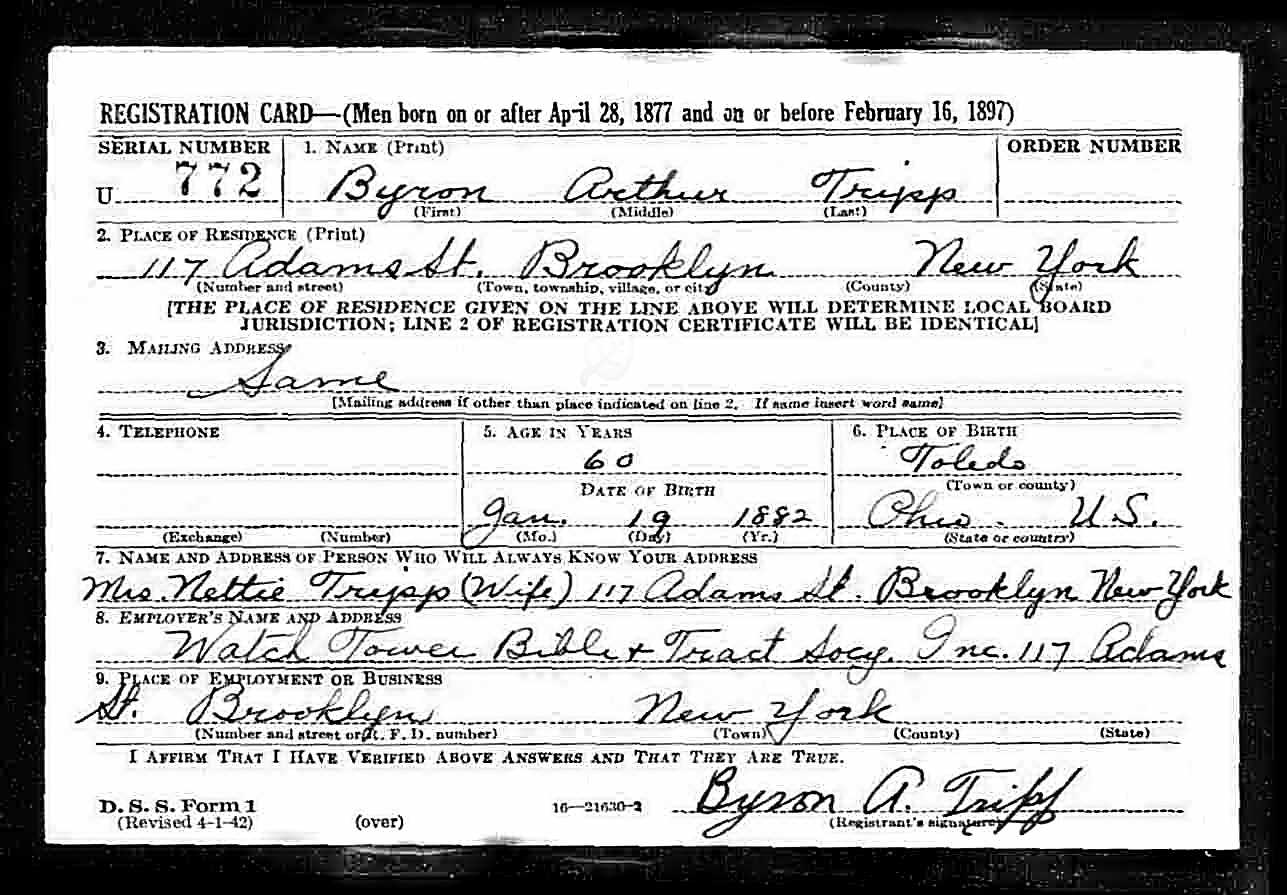 REGISTRATION CARD—(Men born on or after April 28, 1877 and on or before February 16, 1897)
SERIAL NUMBER 1. NAME (Print) ORDER NUMBER
U 772 Byron Arthur Tripp
(First) (Middle) (Last)
2. PLACE OF RESIDENCE (Print)
117 Adams St. Brooklyn New York
(Number and street) (Town, township, village, or city) (County) (State)
[THE PLACE OF RESIDENCE GIVEN ON THE LINE ABOVE WILL DETERMINE LOCAL BOARD
JURISDICTION; LINE 2 OF REGISTRATION CERTIFICATE WILL BE IDENTICAL]
3. MAILING ADDRESS
Same
[Mailing address if other than place indicated on line 2. If same insert word same]
4. TELEPHONE 5. AGE IN YEARS 6. PLACE OF BIRTH
60 Toledo
DATE OF BIRTH (Town or county)
Jan. 19 1882 Ohio. U.S.
(Exchange) (Number) (Mo.) (Day) (Yr.) (State or country)
7. NAME AND ADDRESS OF PERSON WHO WILL ALWAYS KNOW YOUR ADDRESS
Mrs. Nettie Tripp (Wife) 117 Adams St. Brooklyn New York
8. EMPLOYER'S NAME AND ADDRESS
Watch Tower Bible & Tract Socy. Inc. 117 Adams
9. PLACE OF EMPLOYMENT OR BUSINESS
St. Brooklyn New York
(Number and street or R. F. D. number) (Town) (County) (State)
I AFFIRM THAT I HAVE VERIFIED ABOVE ANSWERS AND THAT THEY ARE TRUE.
Byron A. Tripp
D. S. S. Form 1 16—21630-2
(Revised 4-1-42) (over) (Registrant's signature)